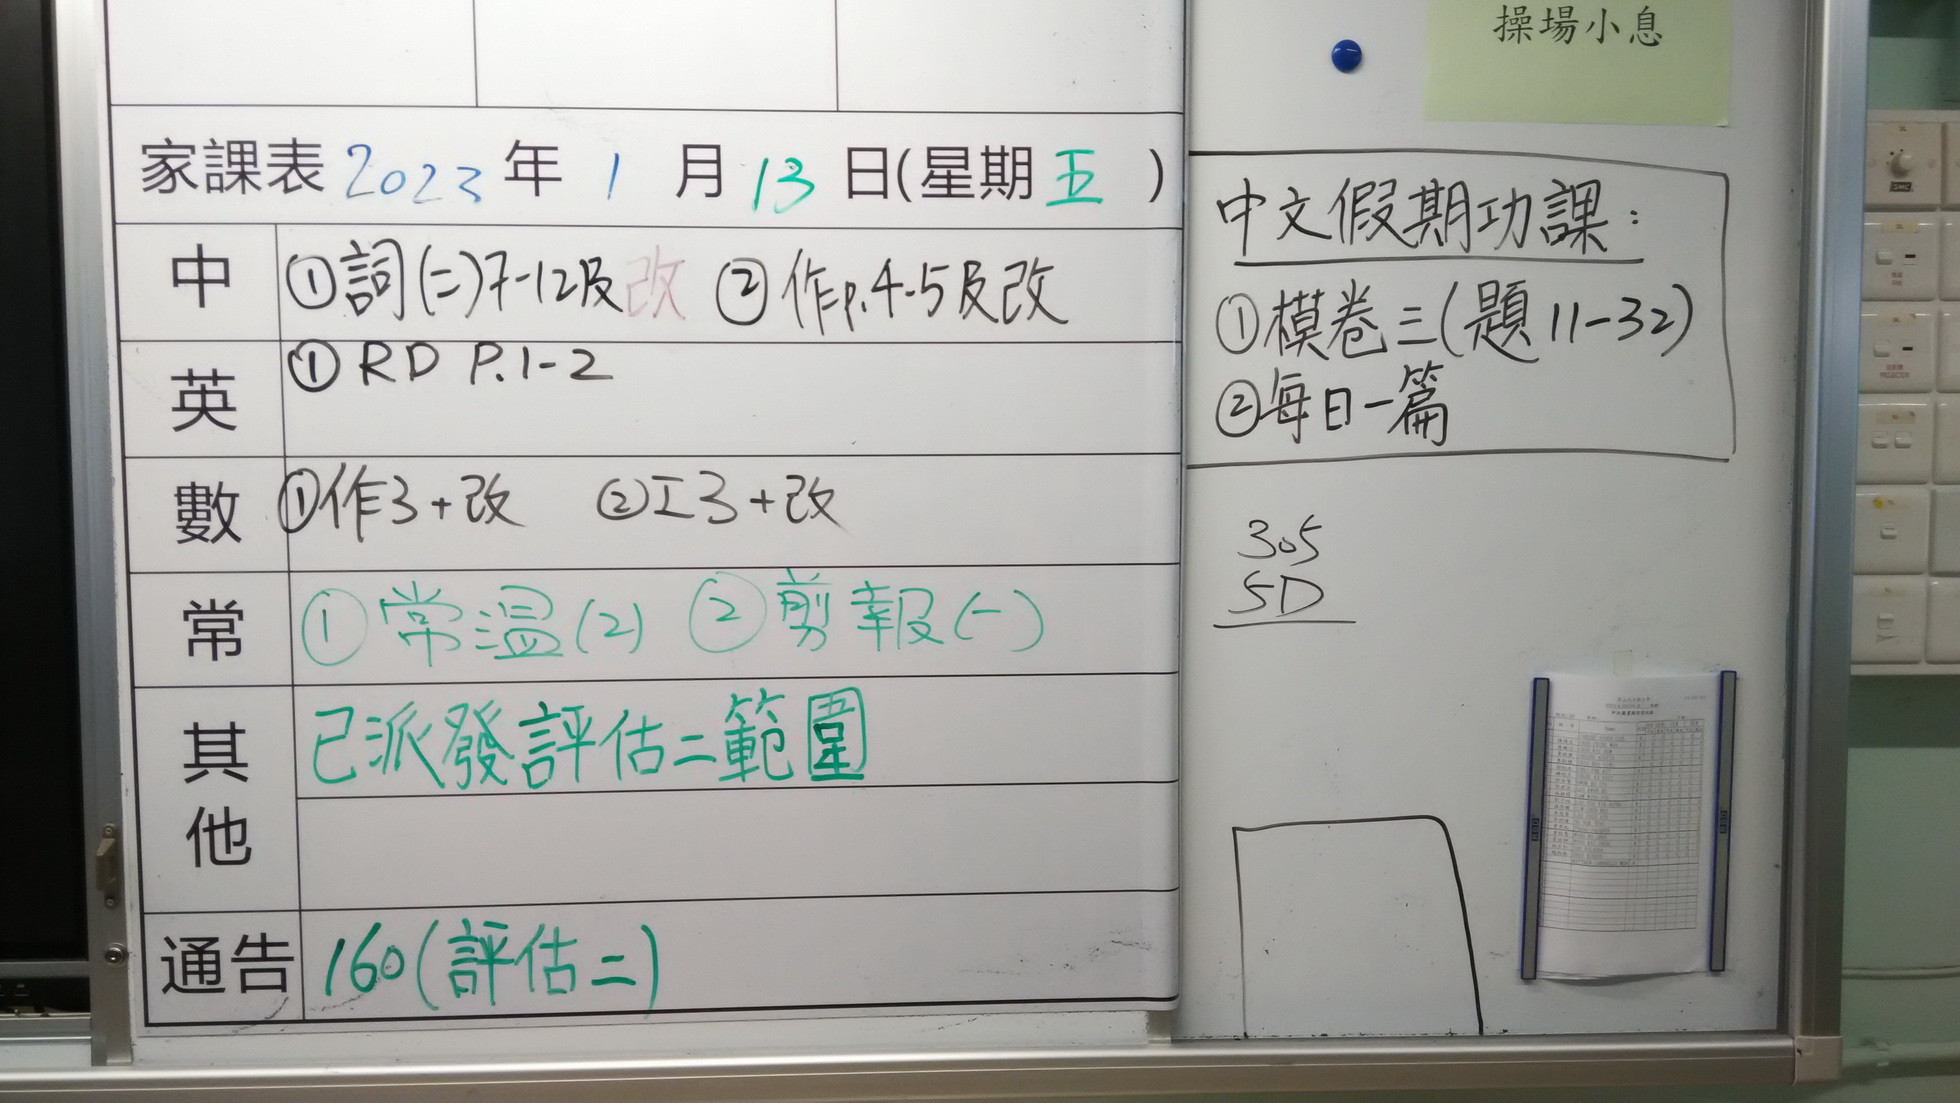 家課表 2023 年 1 月 13 日(星期 五 )
中 ①詞(二)7-12及改 ②作p.4-5及改
英 ① RD P.1-2
數 ①作3+改 ②工3+改
常 ① 常溫(2) ② 剪報(一)
其他 已派發評估二範圍
通告 160(評估二)
操場小息
中文假期功課:
①模卷三(題11-32)
②每日一篇
305
5D